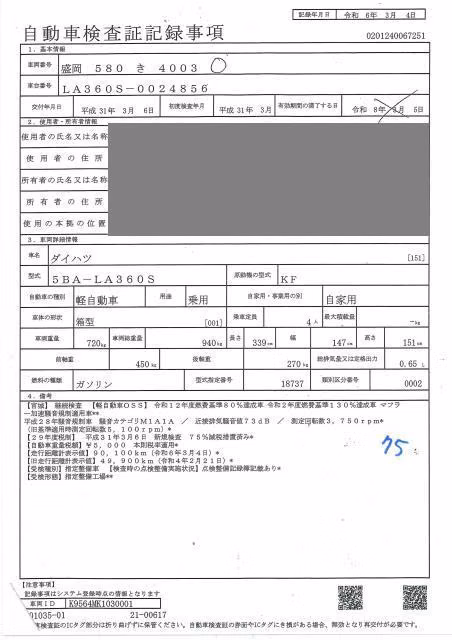 記録年月日 令和 6年 3月 4日
自動車検査証記録事項
0201240067251
1. 基本情報
車両番号 盛岡 580 き 4003
車台番号 LA360S-0024856
交付年月日 平成 31年 3月 6日 初度検査年月 平成 31年 3月 有効期間の満了する日 令和 8年 3月 5日
2. 使用者・所有者情報
使用者の氏名又は名称
使用者の住所
所有者の氏名又は名称
所有者の住所
使用の本拠の位置
3. 車両詳細情報
車名 ダイハツ [151]
型式 5BA-LA360S 原動機の型式 KF
自動車の種別 軽自動車 用途 乗用 自家用・事業用の別 自家用
車体の形状 箱型 [001] 乗車定員 4人 最大積載量 -kg
車両重量 720kg 車両総重量 940kg 長さ 339cm 幅 147cm 高さ 151cm
前軸重 450kg 後軸重 270kg 総排気量又は定格出力 0.65 L
燃料の種類 ガソリン 型式指定番号 18737 類別区分番号 0002
4. 備考
【宮城】 継続検査 【軽自動車OSS】 令和12年度燃費基準80%達成車 令和2年度燃費基準130%達成車 マフラ
ー加速騒音規制適用車**
平成28年騒音規制車 騒音カテゴリM1A1A / 近接排気騒音値73dB / 測定回転数3,750rpm*
(旧基準適用時測定回転数5,100rpm)*
【29年度税制】 平成31年3月6日 新規検査 75%減税措置済み*
【自動車重量税額】¥5,000 本則税率適用*
【走行距離計表示値】90,100km(令和6年3月4日)*
【旧走行距離計表示値】49,900km(令和4年2月21日)*
【受検種別】指定整備車 【検査時の点検整備実施状況】点検整備記録簿記載あり*
【受検形態】指定整備工場**
75
【注意事項】
記録事項はシステム登録時点の情報となります
車両ID K9564MK1030001
01035-01 21-00617
車検査証のICタグ部分は折り曲げずに保管ください。自動車検査証の券面やICタグにき損がある場合、無効となり再交付が必要です。